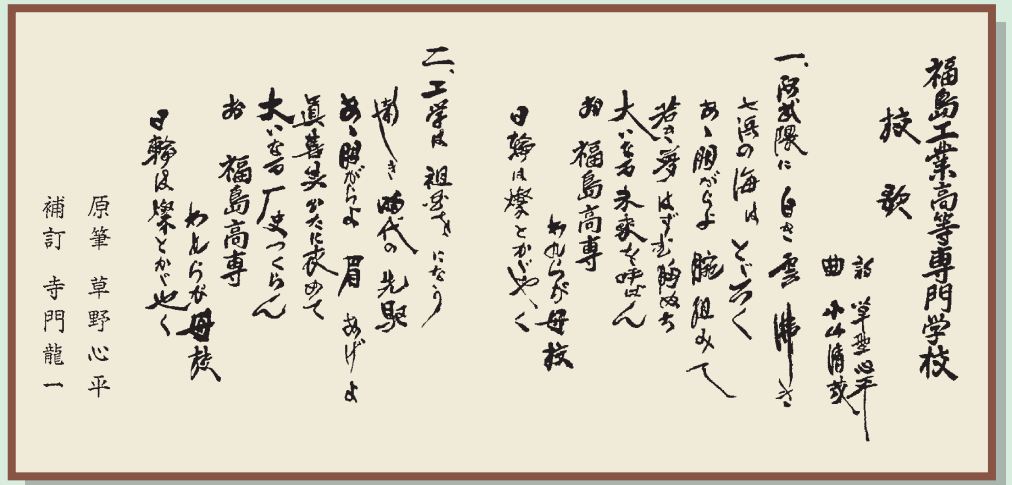 福島工業高等専門学校
校歌
詞 草野心平
曲 小山清茂
一、阿武隈に 白き雲 沸き
七浜の海は とどろく
あゝ 朋がらよ 腕組みて
若き夢 はずむ胸ぬち
大いなる 未来を呼ばん
お 福島高専
われらが母校
日輪は燦とかがやく
二、工学は 祖国を になう
新しき 時代の 先駆
あゝ 朋がらよ 眉 あげよ
眞善美 かたに衣めて
大いなる 歴史つくらん
お 福島高専
われらが 母校
日輪は 燦とかがやく
原筆 草野心平
補訂 寺門龍一